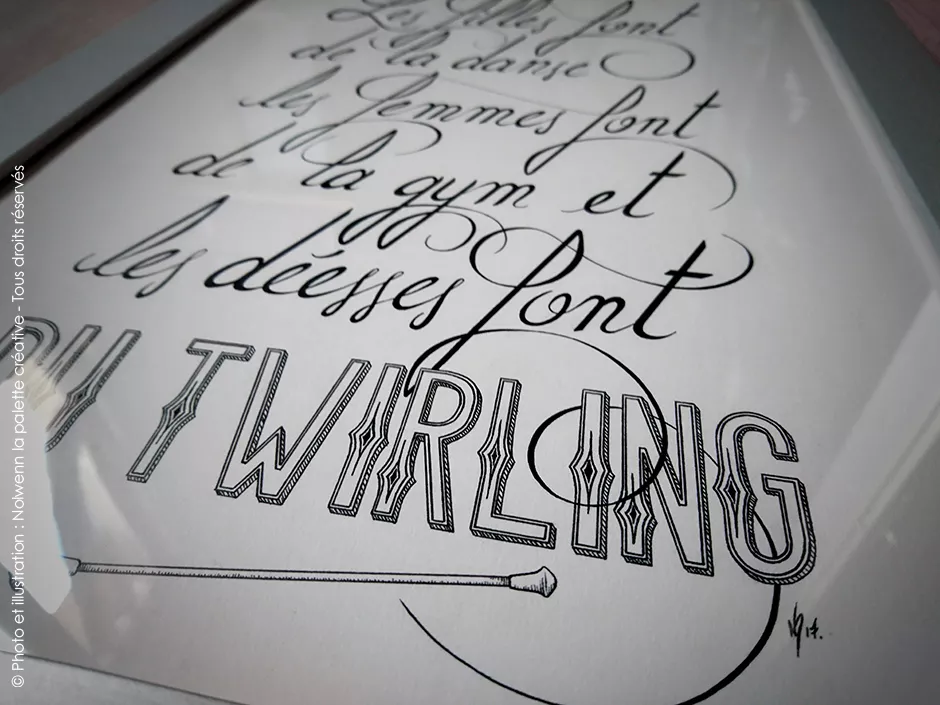 Les filles font
de la danse
les femmes font
de la gym et
les déesses font
DU TWIRLING
17.
© Photo et illustration : Nolwenn la palette créative - Tous droits réservés